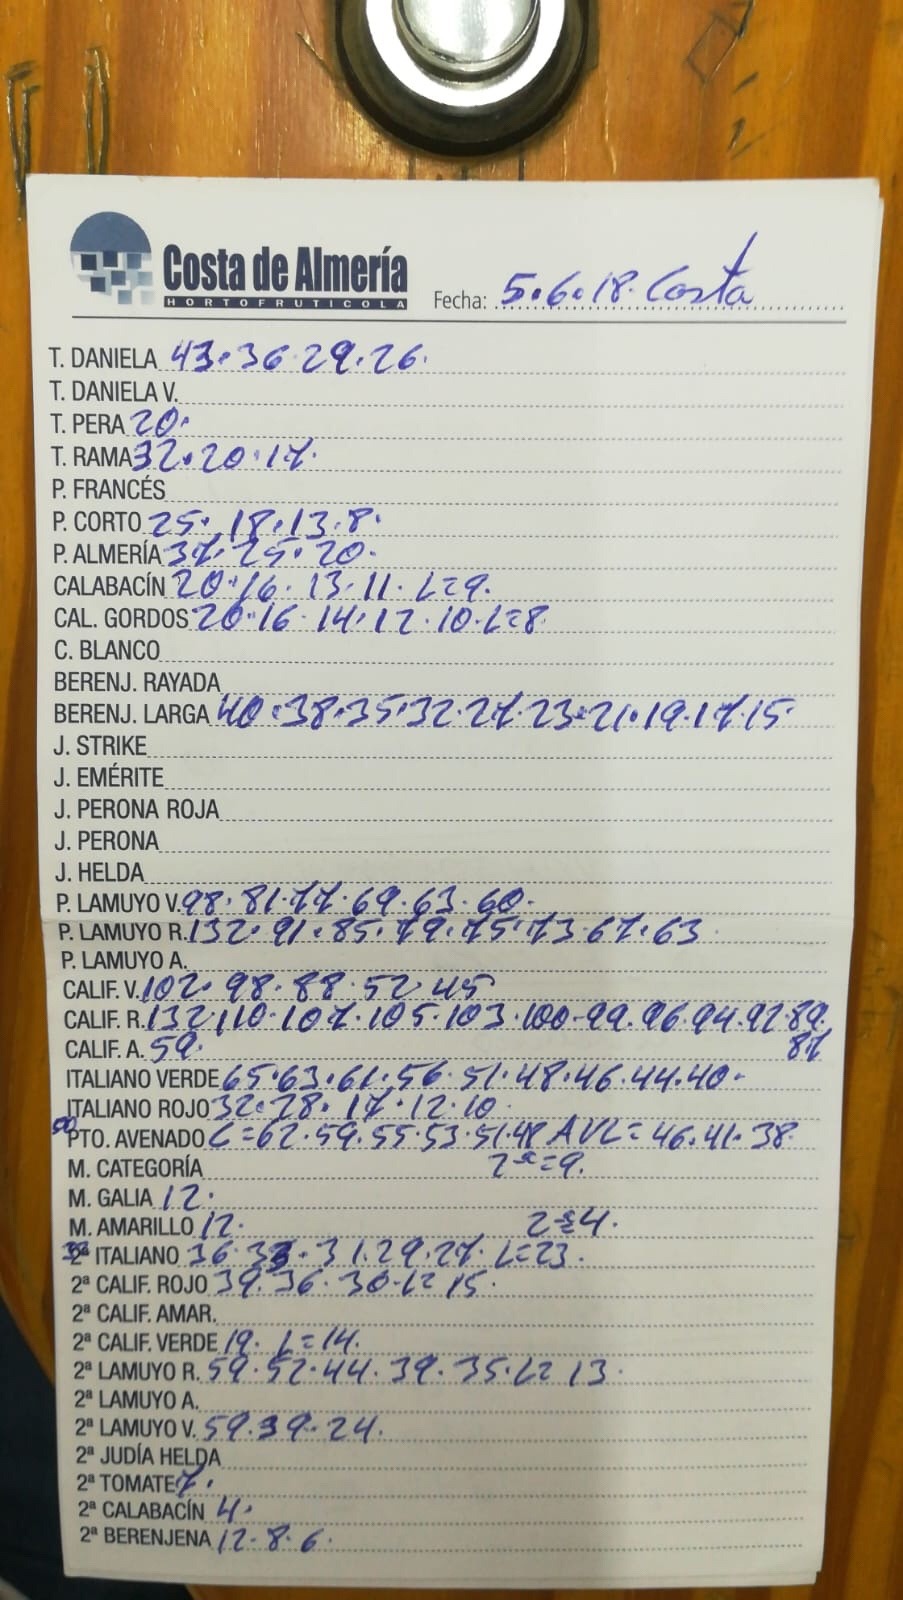 Costa de Almería
HORTOFRUTICOLA
Fecha: 5.6.18. Costa
T. DANIELA 43.36.29.26.
T. DANIELA V.
T. PERA 20.
T. RAMA 32.20.17.
P. FRANCÉS
P. CORTO 25.18.13.8.
P. ALMERÍA 37.25.20.
CALABACÍN 20.16.13.11.L=9.
CAL. GORDOS 20.16.14.12.10.L=8.
C. BLANCO
BERENJ. RAYADA
BERENJ. LARGA 40.38.35.32.27.23.21.19.17.15.
J. STRIKE
J. EMÉRITE
J. PERONA ROJA
J. PERONA
J. HELDA
P. LAMUYO V. 98.81.77.69.63.60.
P. LAMUYO R. 132.91.85.79.75.73.67.63.
P. LAMUYO A.
CALIF. V. 102.98.88.52.45
CALIF. R. 132.110.107.105.103.100.99.96.94.92.89.
87
CALIF. A. 59.
ITALIANO VERDE 65.63.61.56.51.48.46.44.40.
ITALIANO ROJO 32.28.17.12.10.
50
PTO. AVENADO L=62.59.55.53.51.48 AVL=46.41.38.
M. CATEGORÍA 2ª=9.
M. GALIA 12.
M. AMARILLO 12. 2ª=4.
2ª ITALIANO 36.33.31.29.27.L=23.
2ª CALIF. ROJO 39.36.30.L=15.
2ª CALIF. AMAR.
2ª CALIF. VERDE 19.L=14.
2ª LAMUYO R. 59.52.44.39.35.L=13.
2ª LAMUYO A.
2ª LAMUYO V. 59.39.24.
2ª JUDÍA HELDA
2ª TOMATE 7.
2ª CALABACÍN 4.
2ª BERENJENA 12.8.6.